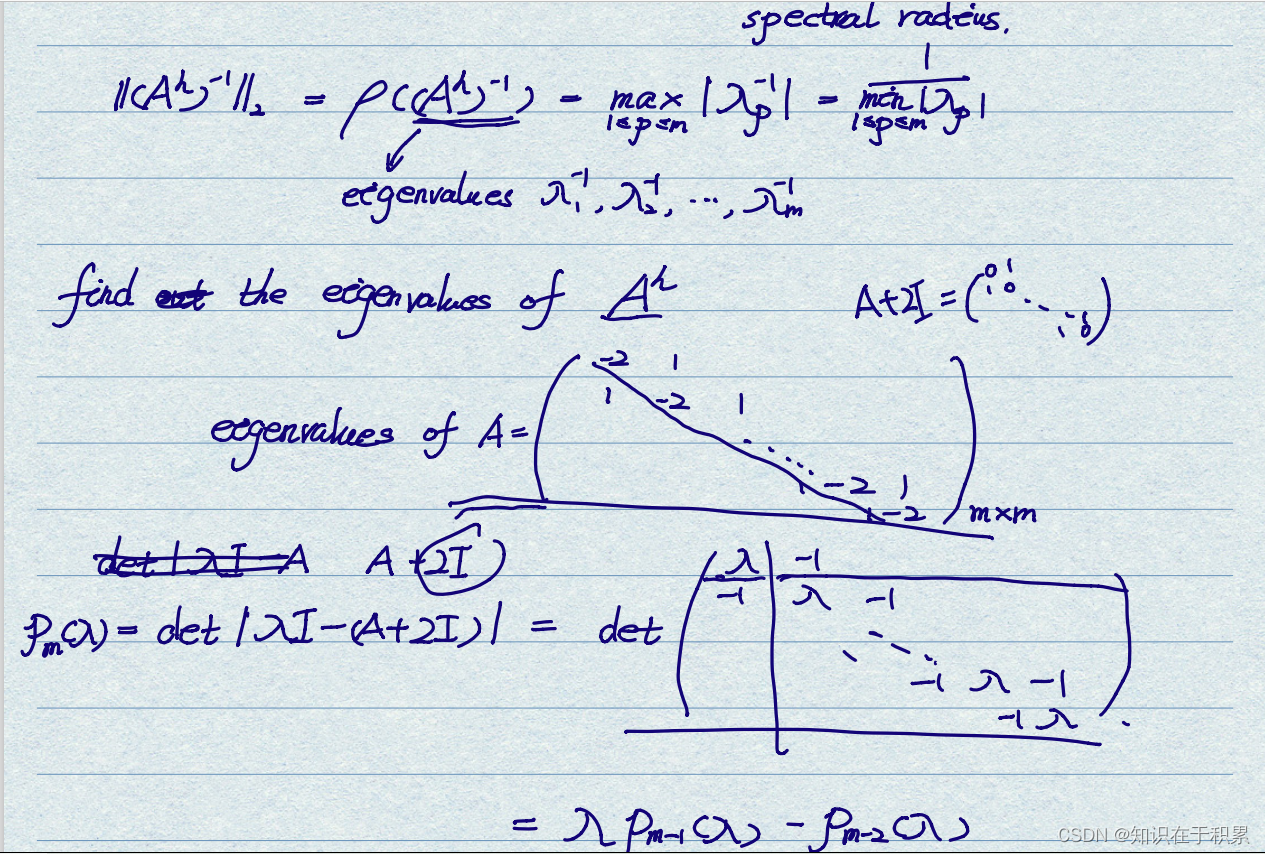 spectral radius.
‖(A^h)^{-1}‖_2 = ρ((A^h)^{-1}) = max_{1≤p≤m} |λ_p^{-1}| = 1 / min_{1≤p≤m} |λ_p|
eigenvalues λ_1^{-1}, λ_2^{-1}, ..., λ_m^{-1}
find out the eigenvalues of A^h A+2I = (0 1 1 0 ⋱ 1 0)
eigenvalues of A = (-2 1
1 -2 1
⋱
1 -2 1
1 -2) m×m
det | λI - A A+2I
p_m(λ) = det |λI-(A+2I)| = det (λ -1
-1 λ -1
⋱ ⋱
-1 λ -1
-1 λ).
= λ p_{m-1}(λ) - p_{m-2}(λ)
CSDN @知识在于积累